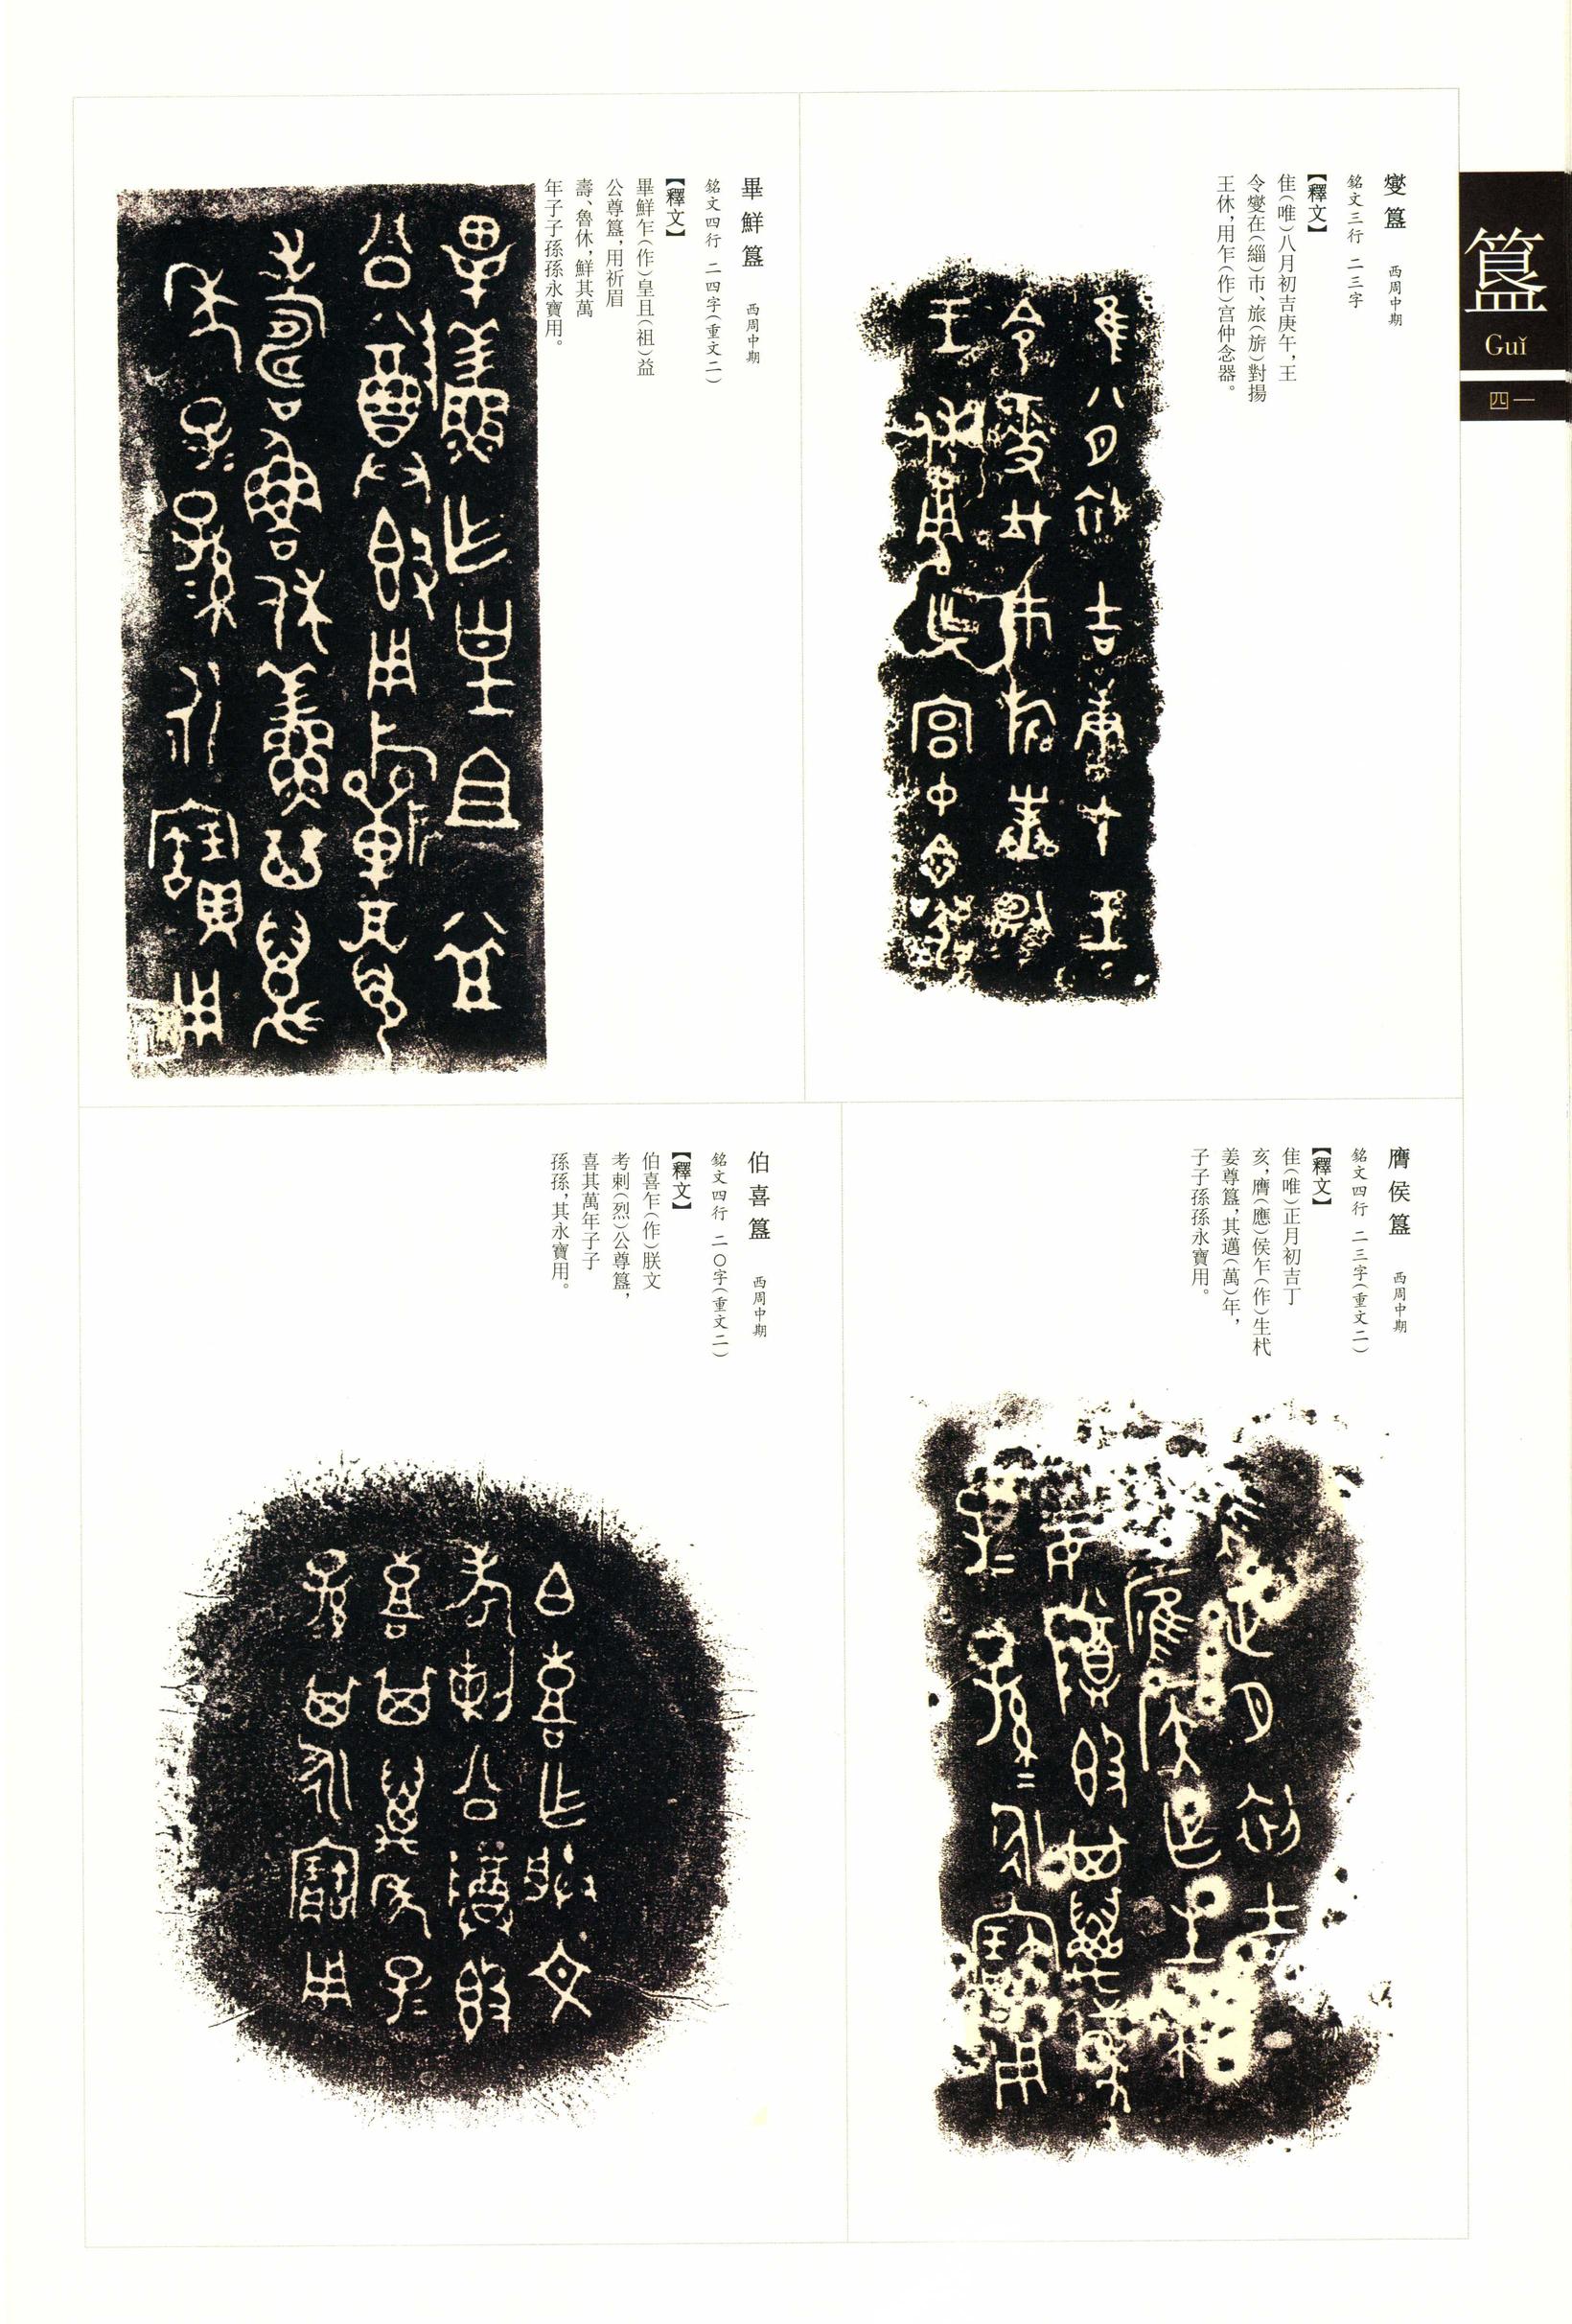 簋
Guǐ
四一
燮簋 西周中期
銘文三行 二三字
【釋文】
隹(唯)八月初吉庚午，王
令燮在(緇)巿、旅(旂)對揚
王休，用乍(作)宮仲念器。
畢鮮簋 西周中期
銘文四行 二四字(重文二)
【釋文】
畢鮮乍(作)皇且(祖)益
公尊簋，用祈眉
壽、魯休，鮮其萬
年子子孫孫永寶用。
膺侯簋 西周中期
銘文四行 二三字(重文二)
【釋文】
隹(唯)正月初吉丁
亥，膺(應)侯乍(作)生杙
姜尊簋，其邁(萬)年，
子子孫孫永寶用。
伯喜簋 西周中期
銘文四行 二〇字(重文二)
【釋文】
伯喜乍(作)朕文
考剌(烈)公尊簋，
喜其萬年子子
孫孫，其永寶用。